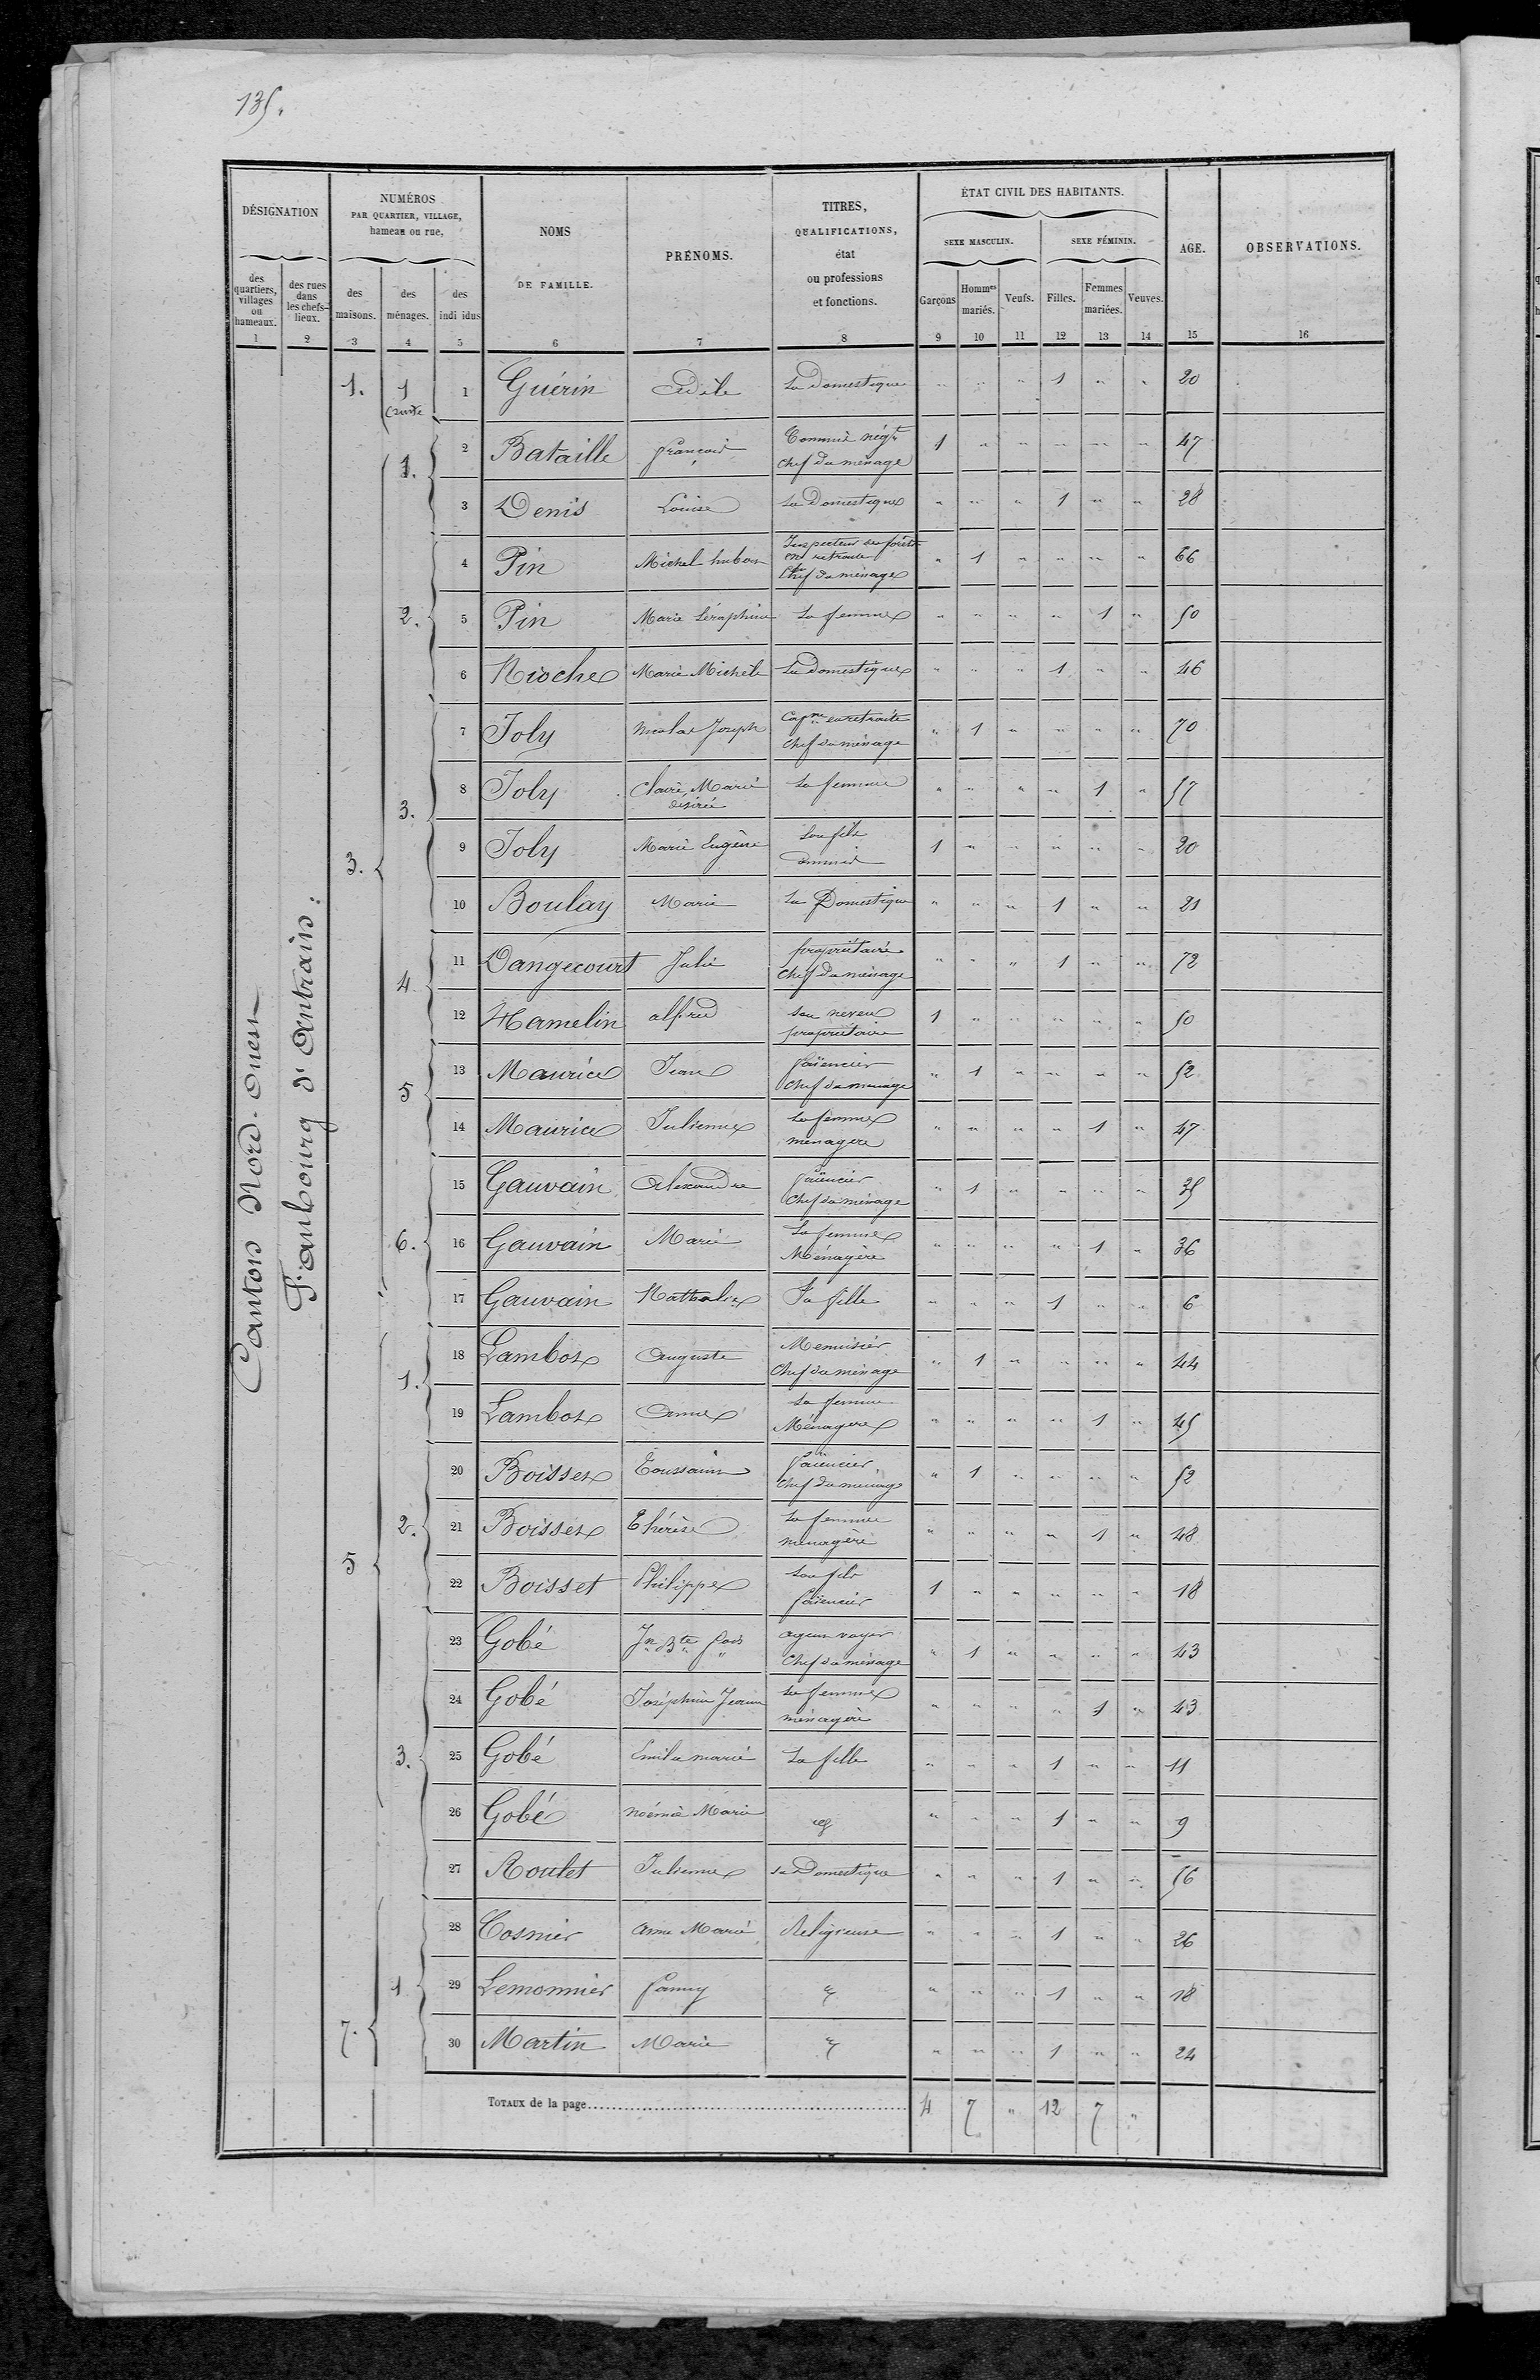 135.
DÉSIGNATION
NUMÉROS
PAR QUARTIER, VILLAGE,
hameau ou rue,
NOMS
DE FAMILLE.
PRÉNOMS.
TITRES,
QUALIFICATIONS,
état
ou professions
et fonctions.
ÉTAT CIVIL DES HABITANTS.
SEXE MASCULIN.
SEXE FÉMININ.
AGE.
OBSERVATIONS.
des quartiers, villages ou hameaux.
des rues dans les chefs-lieux.
des maisons.
des ménages.
des indi idus
Garçons
Hommes mariés.
Veufs.
Filles.
Femmes mariées.
Veuves.
1 2 3 4 5 6 7 8 9 10 11 12 13 14 15 16
Canton Nord-Ouest
Faubourg d'Antrain.
1. 1 (suite 1 Guérin Adèle Sa domestique " " " 1 " " 20
3. 1. 2 Bataille françois Commis négt chef du ménage 1 " " " " " 47
3 Denis Louise Sa Domestique " " " 1 " " 28
2. 4 Pin Michel hubert Inspecteur des forêts en retraite Chef du ménage " 1 " " " " 66
5 Pin Marie Séraphine Sa femme " " " " 1 " 50
6 Nioche Marie Michèle Sa domestique " " " 1 " " 46
3. 7 Joly Nicolas Joseph Capne en retraite Chef du ménage " 1 " " " " 70
8 Joly Claire Marie désirée Sa femme " " " " 1 " 57
9 Joly Marie Eugène Son fils commis 1 " " " " " 20
10 Boulay Marie Sa Domestique " " " 1 " " 21
4 11 Dangecourt Julie propriétaire Chef du ménage " " " 1 " " 72
12 Hamelin alfred son neveu propriétaire 1 " " " " " 50
5 13 Maurice Jean faïencier Chef du ménage " 1 " " " " 52
14 Maurice Julienne Sa femme ménagère " " " " 1 " 47
6. 15 Gauvain Alexandre faïencier Chef du ménage " 1 " " " " 35
16 Gauvain Marie Sa femme Ménagère " " " " 1 " 36
17 Gauvain Nathalie Sa fille " " " 1 " " 6
5 1. 18 Lambot Auguste Menuisier Chef du ménage " 1 " " " " 44
19 Lambot Anne Sa femme Ménagère " " " " 1 " 45
2. 20 Boisset Toussaint faïencier Chef du ménage " 1 " " " " 52
21 Boisset Thérèse Sa femme ménagère " " " " 1 " 48
22 Boisset Philippe Son fils faïencier 1 " " " " " 18
3. 23 Gobé Jn Bte fois agent voyer Chef du ménage " 1 " " " " 43
24 Gobé Joséphine Jeanne Sa femme ménagère " " " " 1 " 43
25 Gobé Emilie marie Sa fille " " " 1 " " 11
26 Gobé noémie Marie " " " 1 " " 9
27 Roulet Julienne sa Domestique " " " 1 " " 56
7. 1 28 Cosnier Anne Marie Religieuse " " " 1 " " 26
29 Lemonnier fanny " " " 1 " " 18
30 Martin Marie " " " 1 " " 24
TOTAUX de la page 4 7 " 12 7 "